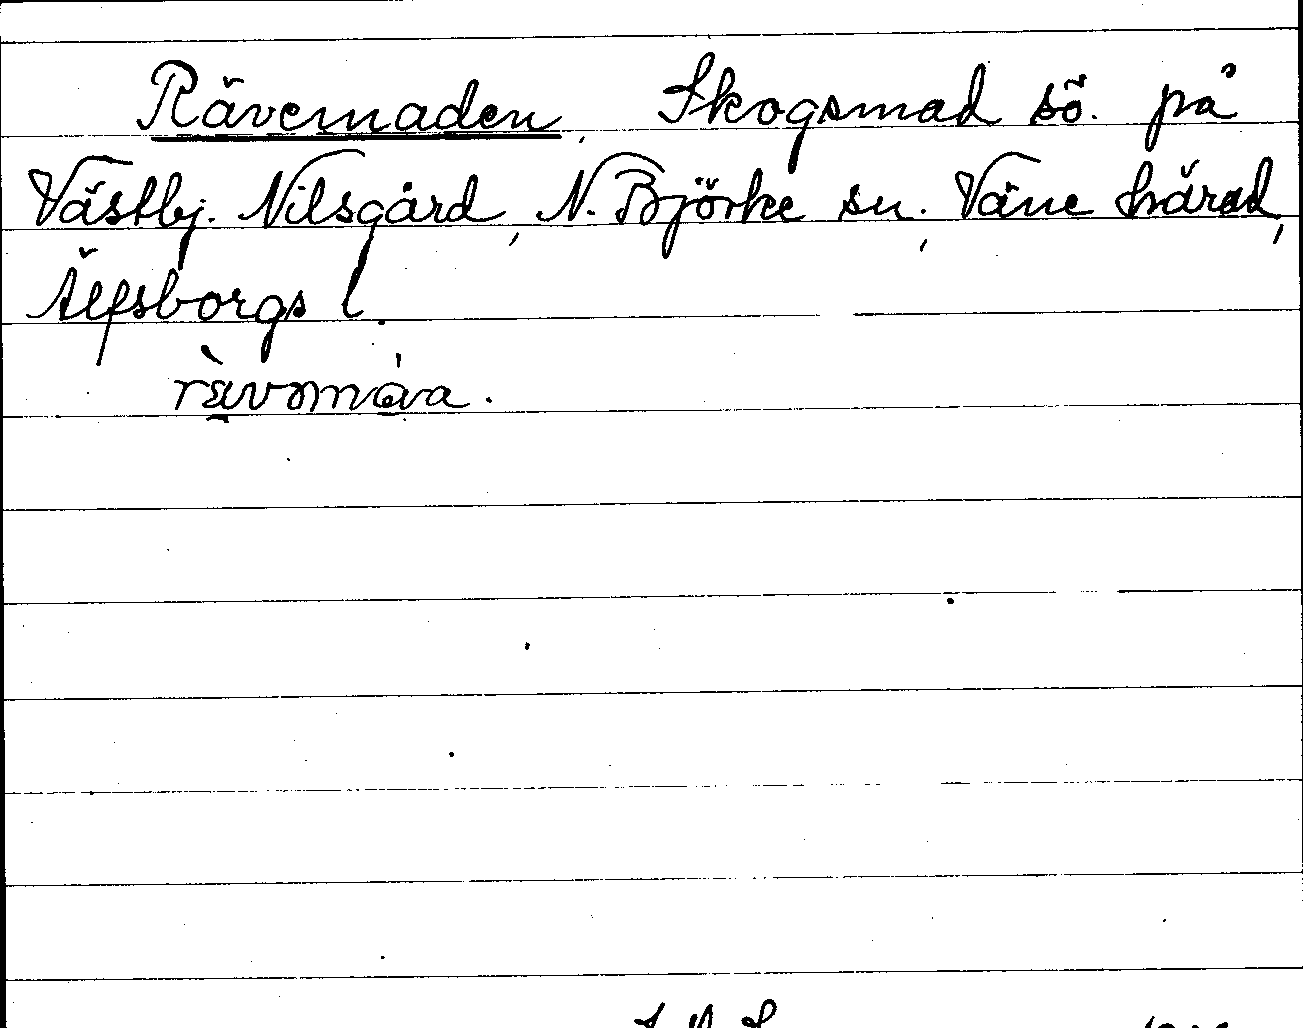 Rävemaden, Skogsmad sö. på
Västbj. Nilsgård, N. Björke sn., Väne härad,
Älfsborgs l.